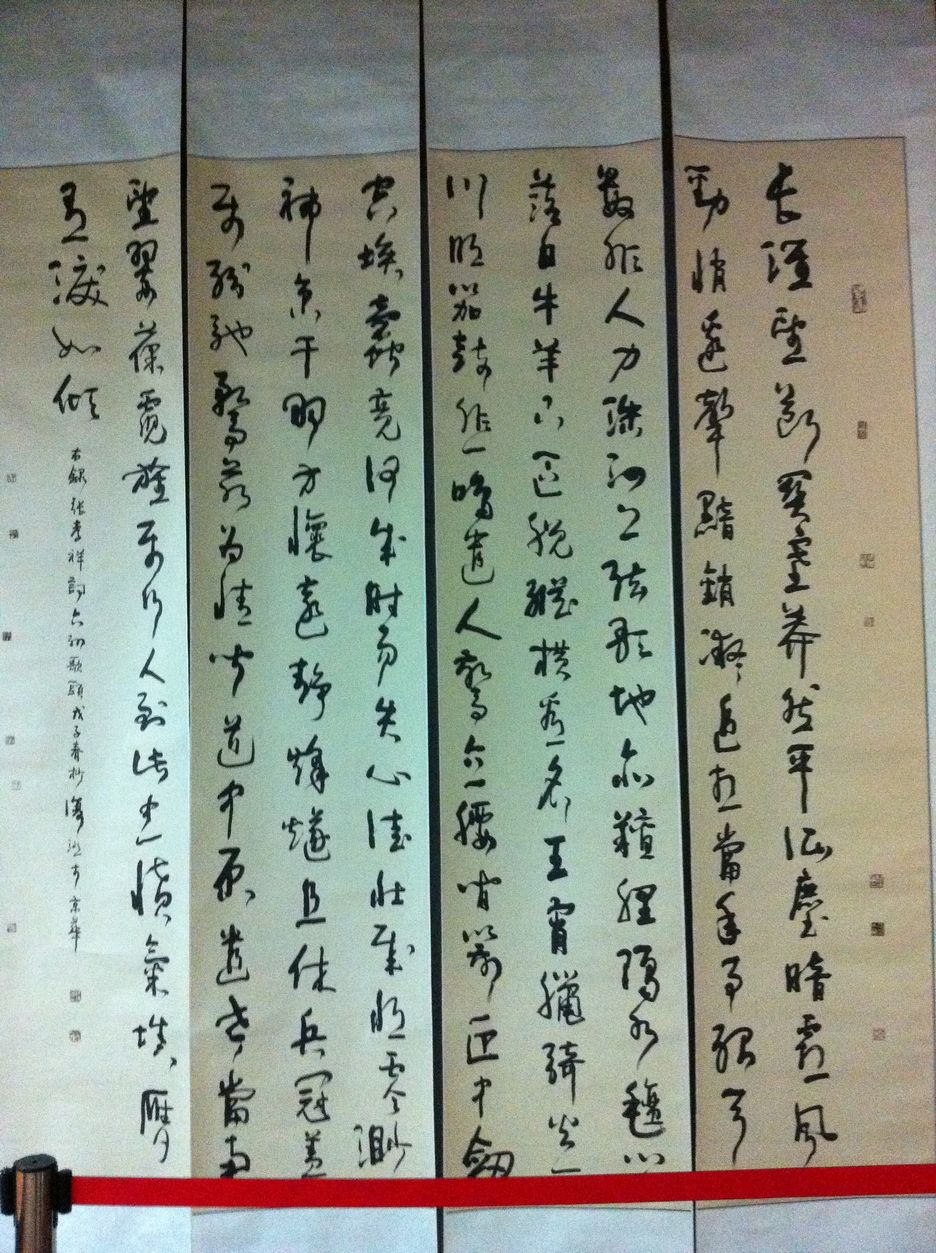 長淮望斷關塞莽然平征塵暗霜風
勁悄邊聲黯銷凝追想當年事殆天
數非人力洙泗上弦歌地亦羶腥隔水氈鄉
落日牛羊下區脫縱橫看名王宵獵騎火一
川明笳鼓悲鳴遣人驚念腰間箭匣中劍
空埃蠹竟何成時易失心徒壯歲將零渺
神京干羽方懷遠靜烽燧且休兵冠蓋
使紛馳騖若為情聞道中原遺老常南
望翠葆霓旌使行人到此忠憤氣填膺
有淚如傾
右錄張孝祥詞六州歌頭戊子春杪 於京華